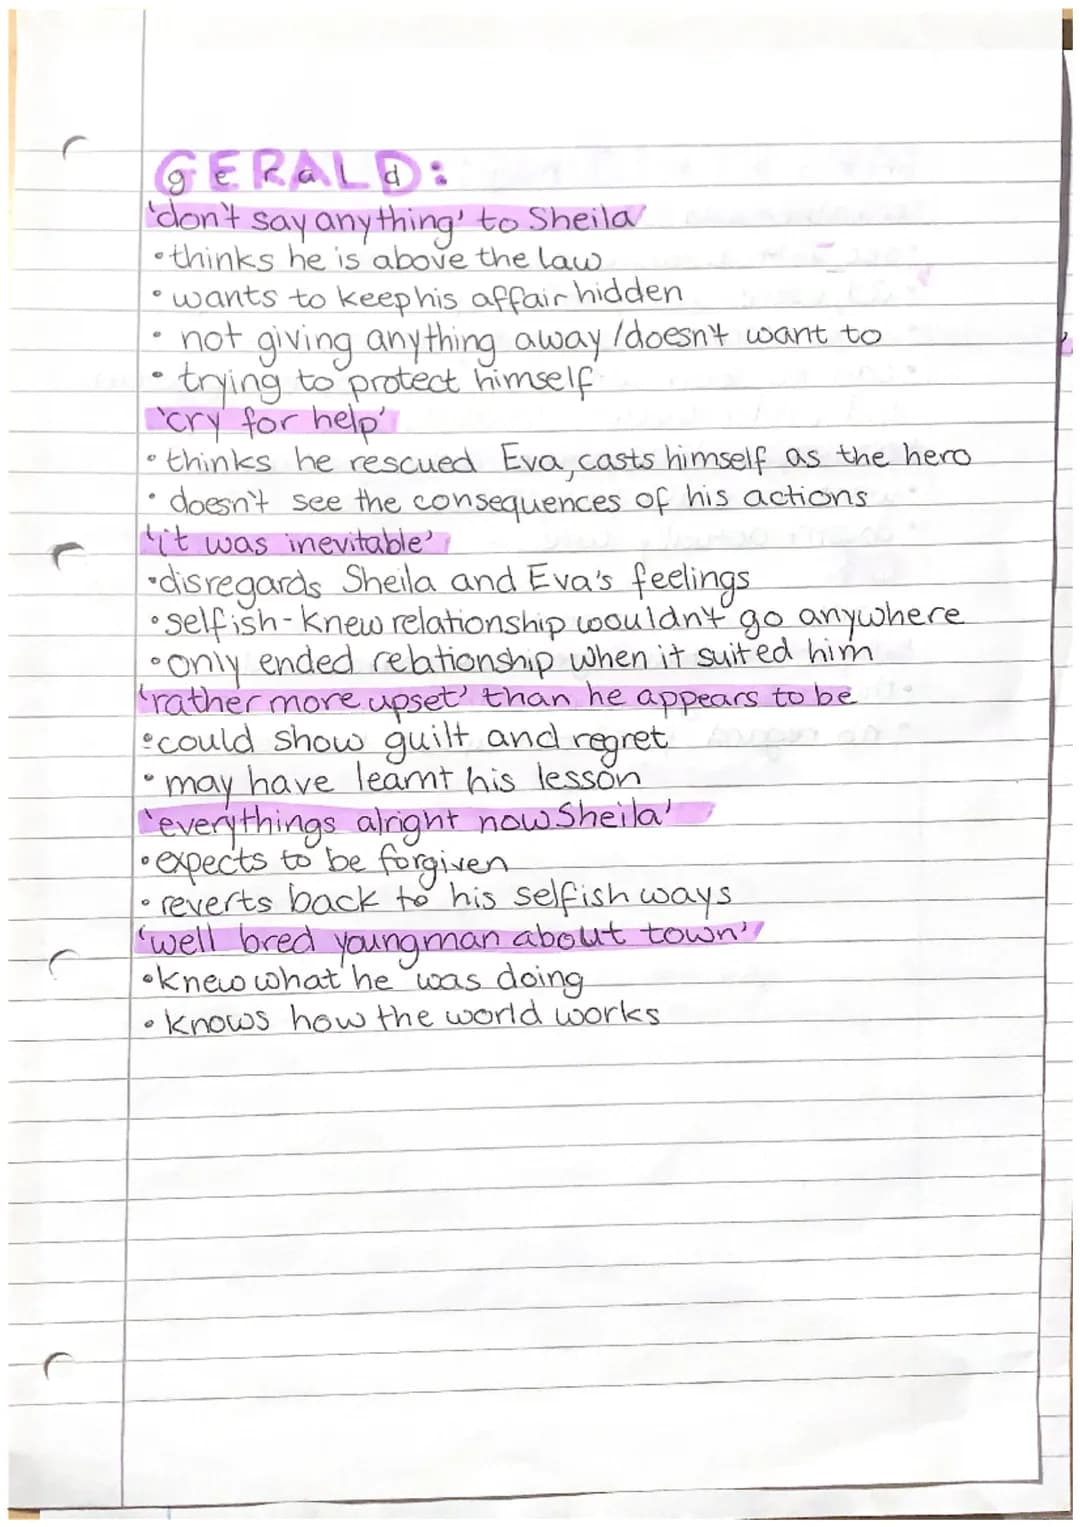 GERALD:
'don't say anything' to Sheila
• thinks he is above the law
• wants to keep his affair hidden
• not giving anything away / doesn't want to
• trying to protect himself
'cry for help'
• thinks he rescued Eva, casts himself as the hero
• doesn't see the consequences of his actions
'it was inevitable'
• disregards Sheila and Eva's feelings
• selfish - knew relationship wouldn't go anywhere
• only ended relationship when it suited him
'rather more upset' than he appears to be
• could show guilt and regret
• may have learnt his lesson
'everythings alright now Sheila'
• expects to be forgiven
• reverts back to his selfish ways
'well bred young man about town'
• knew what he was doing
• knows how the world works